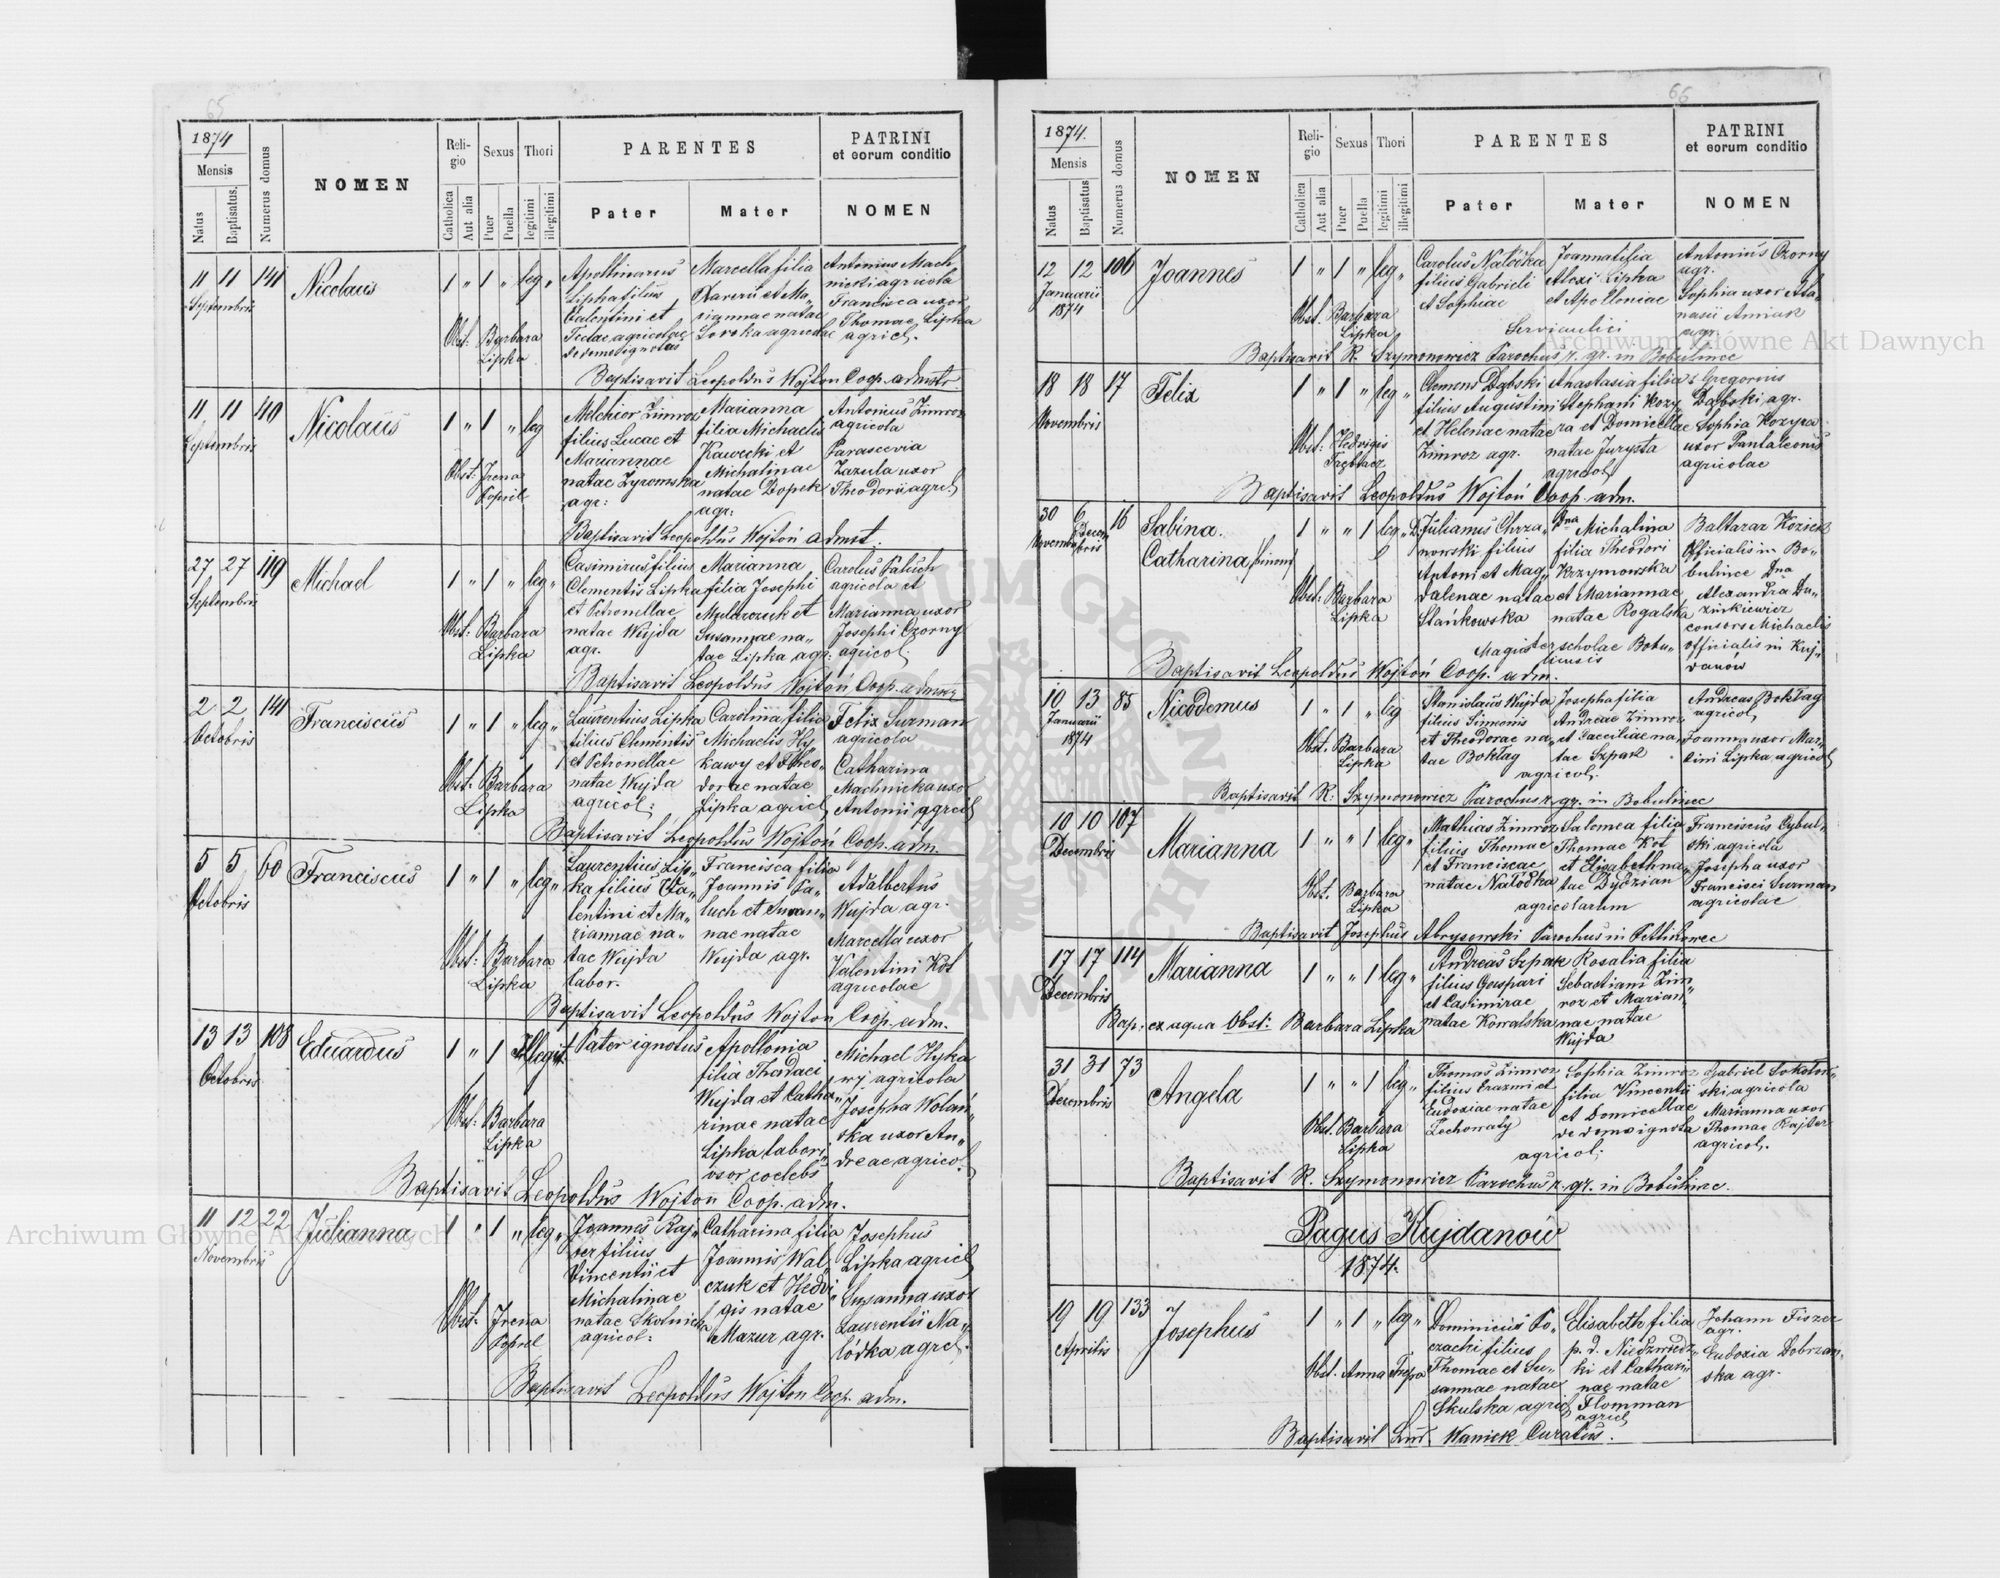 65
1874
Mensis
Natus
Baptisatus.
Numerus domus
NOMEN
Reli-
gio
Catholica
Aut alia
Sexus
Puer
Puella
Thori
legitimi
illegitimi
PARENTES
Pater
Mater
PATRINI
et eorum conditio
NOMEN
11 11 141 Nicolaus 1 " 1 " leg "
Septembris
Apollinarus
Lipka filius
Valentini et
Teclae agricolae
de domo ignotas
Marcella filia
Xaverii et Ma„
riannae natae
Soroka agricolae
Antonius Mach
nicki agricola
Francisca uxor
Thomae Lipka
agricl.
Obst: Barbara
Lipka
Baptisavit Leopoldus Wojtoń Coop. admstr
11 11 40 Nicolaus 1 " 1 " leg
Septembris
Melchior Zimroz
filius Lucae et
Mariannae
natae Zyromska
agr:
Marianna
filia Michaelis
Kawecki et
Michalinae
natae Dopek
agr:
Antonius Zimroz
agricola
Parascevia
Zazula uxor
Theodorii agrcl.
Obst: Irena
Popril
Baptisavit Leopoldus Wojtoń admst.
27 27 119 Michael 1 " 1 " leg "
Septembris
Casimirus filius
Clementis Lipka
et Petronellae
natae Wujda
agr.
Marianna
filia Josephi
Susannae na„
tae Lipka agr:
Carolus Paluch
agricola et
Marianna uxor
Josephi Czorny
agricol:
Obst: Barbara
Lipka
Baptisavit Leopoldus Wojtoń Coop. admstr
2 2 141 Franciscus 1 " 1 " leg "
Octobris
Laurentius Lipka
filius Clementis
et Petronellae
natae Wujda
agricol:
Carolina filia
Michaelis Hy
kawy et Theo„
dorae natae
Lipka agricl
Felix Surman
agricola
Catharina
Machnicka uxor
Antonii agricol
Obst: Barbara
Lipka
Baptisavit Leopoldus Wojtoń Coop. adm.
5 5 60 Franciscus 1 " 1 " leg "
Octobris
Laurentius Lip„
ka filius Va„
lentini et Ma„
riannae na„
tae Wujda
labor.
Francisca filia
Joannis Pa„
luch et Susan„
nae natae
Wujda agr.
Adalbertus
Wujda agr.
Marcella uxor
Valentini Kot
agricolae
Obst: Barbara
Lipka
Baptisavit Leopoldus Wojtoń Coop. adm.
13 13 108 Eduardus 1 " 1 Illegit:
Octobris
Pater ignotus
Apollonia
filia Thadaei
Wujda et Catha„
rinae natae
Lipka labori„
osor coelebs
Michael Hyka
wy agricola
Josepha Wolań„
ska uxor An„
dreae agricol.
Obst: Barbara
Lipka
Baptisavit Leopoldus Wojtoń Coop. adm.
11 12 22 Julianna 1 " 1 " leg "
Novembris
Joannes Raj„
ter filius
Vincentii et
Michalinae
natae Skolnicka
agricol:
Catharina filia
Joannis Wal
czuk et Hedvi„
gis natae
Mazur agr.
Josephus
Lipka agricl
Susanna uxor
Laurentii Na„
łódka agrcl.
Obst: Irena
Popril
Baptisavit Leopoldus Wojtoń Coop. adm.
66
1874.
Mensis
Natus
Baptisatus
Numerus domus
NOMEN
Reli-
gio
Catholica
Aut alia
Sexus
Puer
Puella
Thori
legitimi
illegitimi
PARENTES
Pater
Mater
PATRINI
et eorum conditio
NOMEN
12 12 106 Joannes 1 " 1 " leg "
Januarii
1874
Carolus Natočka
filius Gabrieli
et Sophiae
Joanna filia
Alexi Lipka
et Apolloniae
Antonius Czorny
agr.
Sophia uxor Ata„
nasii Amiak
agr.
Servi aulici
Obst. Barbara
Lipka
Baptisavit R. Szymonowicz Parochus r. gr. in Bobulince
18 18 17 Felix 1 " 1 " leg "
Novembris
Clemens Dąbski
filius Augustini
et Helenae natae
Zimroz agr.
Anastasia filia
Stephani Kozy
ra et Domicellae
natae Jurysta
agricol
Gregorius
Dąbski agr.
Sophia Kozyra
uxor Pantaleonis
agricolae
Obst: Hedvigis
Trębacz
Baptisavit Leopoldus Wojtoń Coop. adm.
30 6 16 Sabina.
Novembris Decem
bris
Catharina /binom/
1 " " 1 leg "
D. Julianus Chrza„
nowski filius
Antoni et Mag„
dalenae natae
Stańkowska
Dna Michalina
filia Theodori
Krzymowska
et Mariannae
natae Rogalska
Baltazar Koziek
Officialis in Bo„
bulince Dna
Alexandra Du„
zinkiewicz
consors Michaelis
officialis in Kuj„
danów
Magister scholae Bobu„
linensis
Obst: Barbara
Lipka
Baptisavit Leopoldus Wojtoń Coop. adm.
10 13 85 Nicodemus 1 " 1 " leg
Januarii
1874
Stanislaus Wujda
filius Simonis
et Theodorae na„
tae Boktag
Josepha filia
Andreae Zimroz
et Caeciliae na„
tae Szpak
agricol:
Andreas Boktag
agricol,
Joanna uxor Mar„
tini Lipka agricol
Obst. Barbara
Lipka
Baptisavit R. Szymonowicz Parochus r. gr. in Bobulince
10 10 107 Marianna 1 " " 1 leg "
Decembris
Mathias Zimroz
filius Thomae
et Franciscae
natae Natodka
Salomea filia
Thomae Kot
et Elisabeth na„
tae Dydzian
agricolarum
Franciscus Cybul„
ski agricola
Josepha uxor
Francisci Surman
agricolae
Obst. Barbara
Lipka
Baptisavit Josephus Abrysowski Parochus in Petlikowce
17 17 114 Marianna 1 " " 1 leg "
Decembris
Andreas Szpak
filius Gaspari
et Casimirae
natae Kowalska
Rosalia filia
Sebastiani Zim„
roz et Marian„
nae natae
Wujda
Bap. ex aqua Obst: Barbara Lipka
31 31 73 Angela 1 " " 1 leg "
Decembris
Thomas Zimroz
filius Erazmi et
Eudoxiae natae
Lechowaty
Sophia Zimroz
filia Vincentii
et Domicellae
de domo ignota
agricol;
Gabriel Sokołow„
ski agricola
Marianna uxor
Thomae Rajter
agricol.
Obst. Barbara
Lipka
Baptisavit R. Szymonowicz Parochus r. gr. in Bobulince.
Pagus Kujdanów
1874.
19 19 133 Josephus 1 " 1 " leg "
Aprilis
Dominicus Po„
czacki filius
Thomae et Su„
sannae natae
Skulska agricl
Elisabeth filia
p. d. Niedzwiedz„
ki et Cathari„
nae natae
Flomman
agricl
Johann Fiszer
agr.
Eudoxia Dobrzan„
ska agr.
Obst. Anna
Baptisavit Lud. Wanick Curatus.
Archiwum Główne Akt Dawnych
Archiwum Główne Akt Dawnych